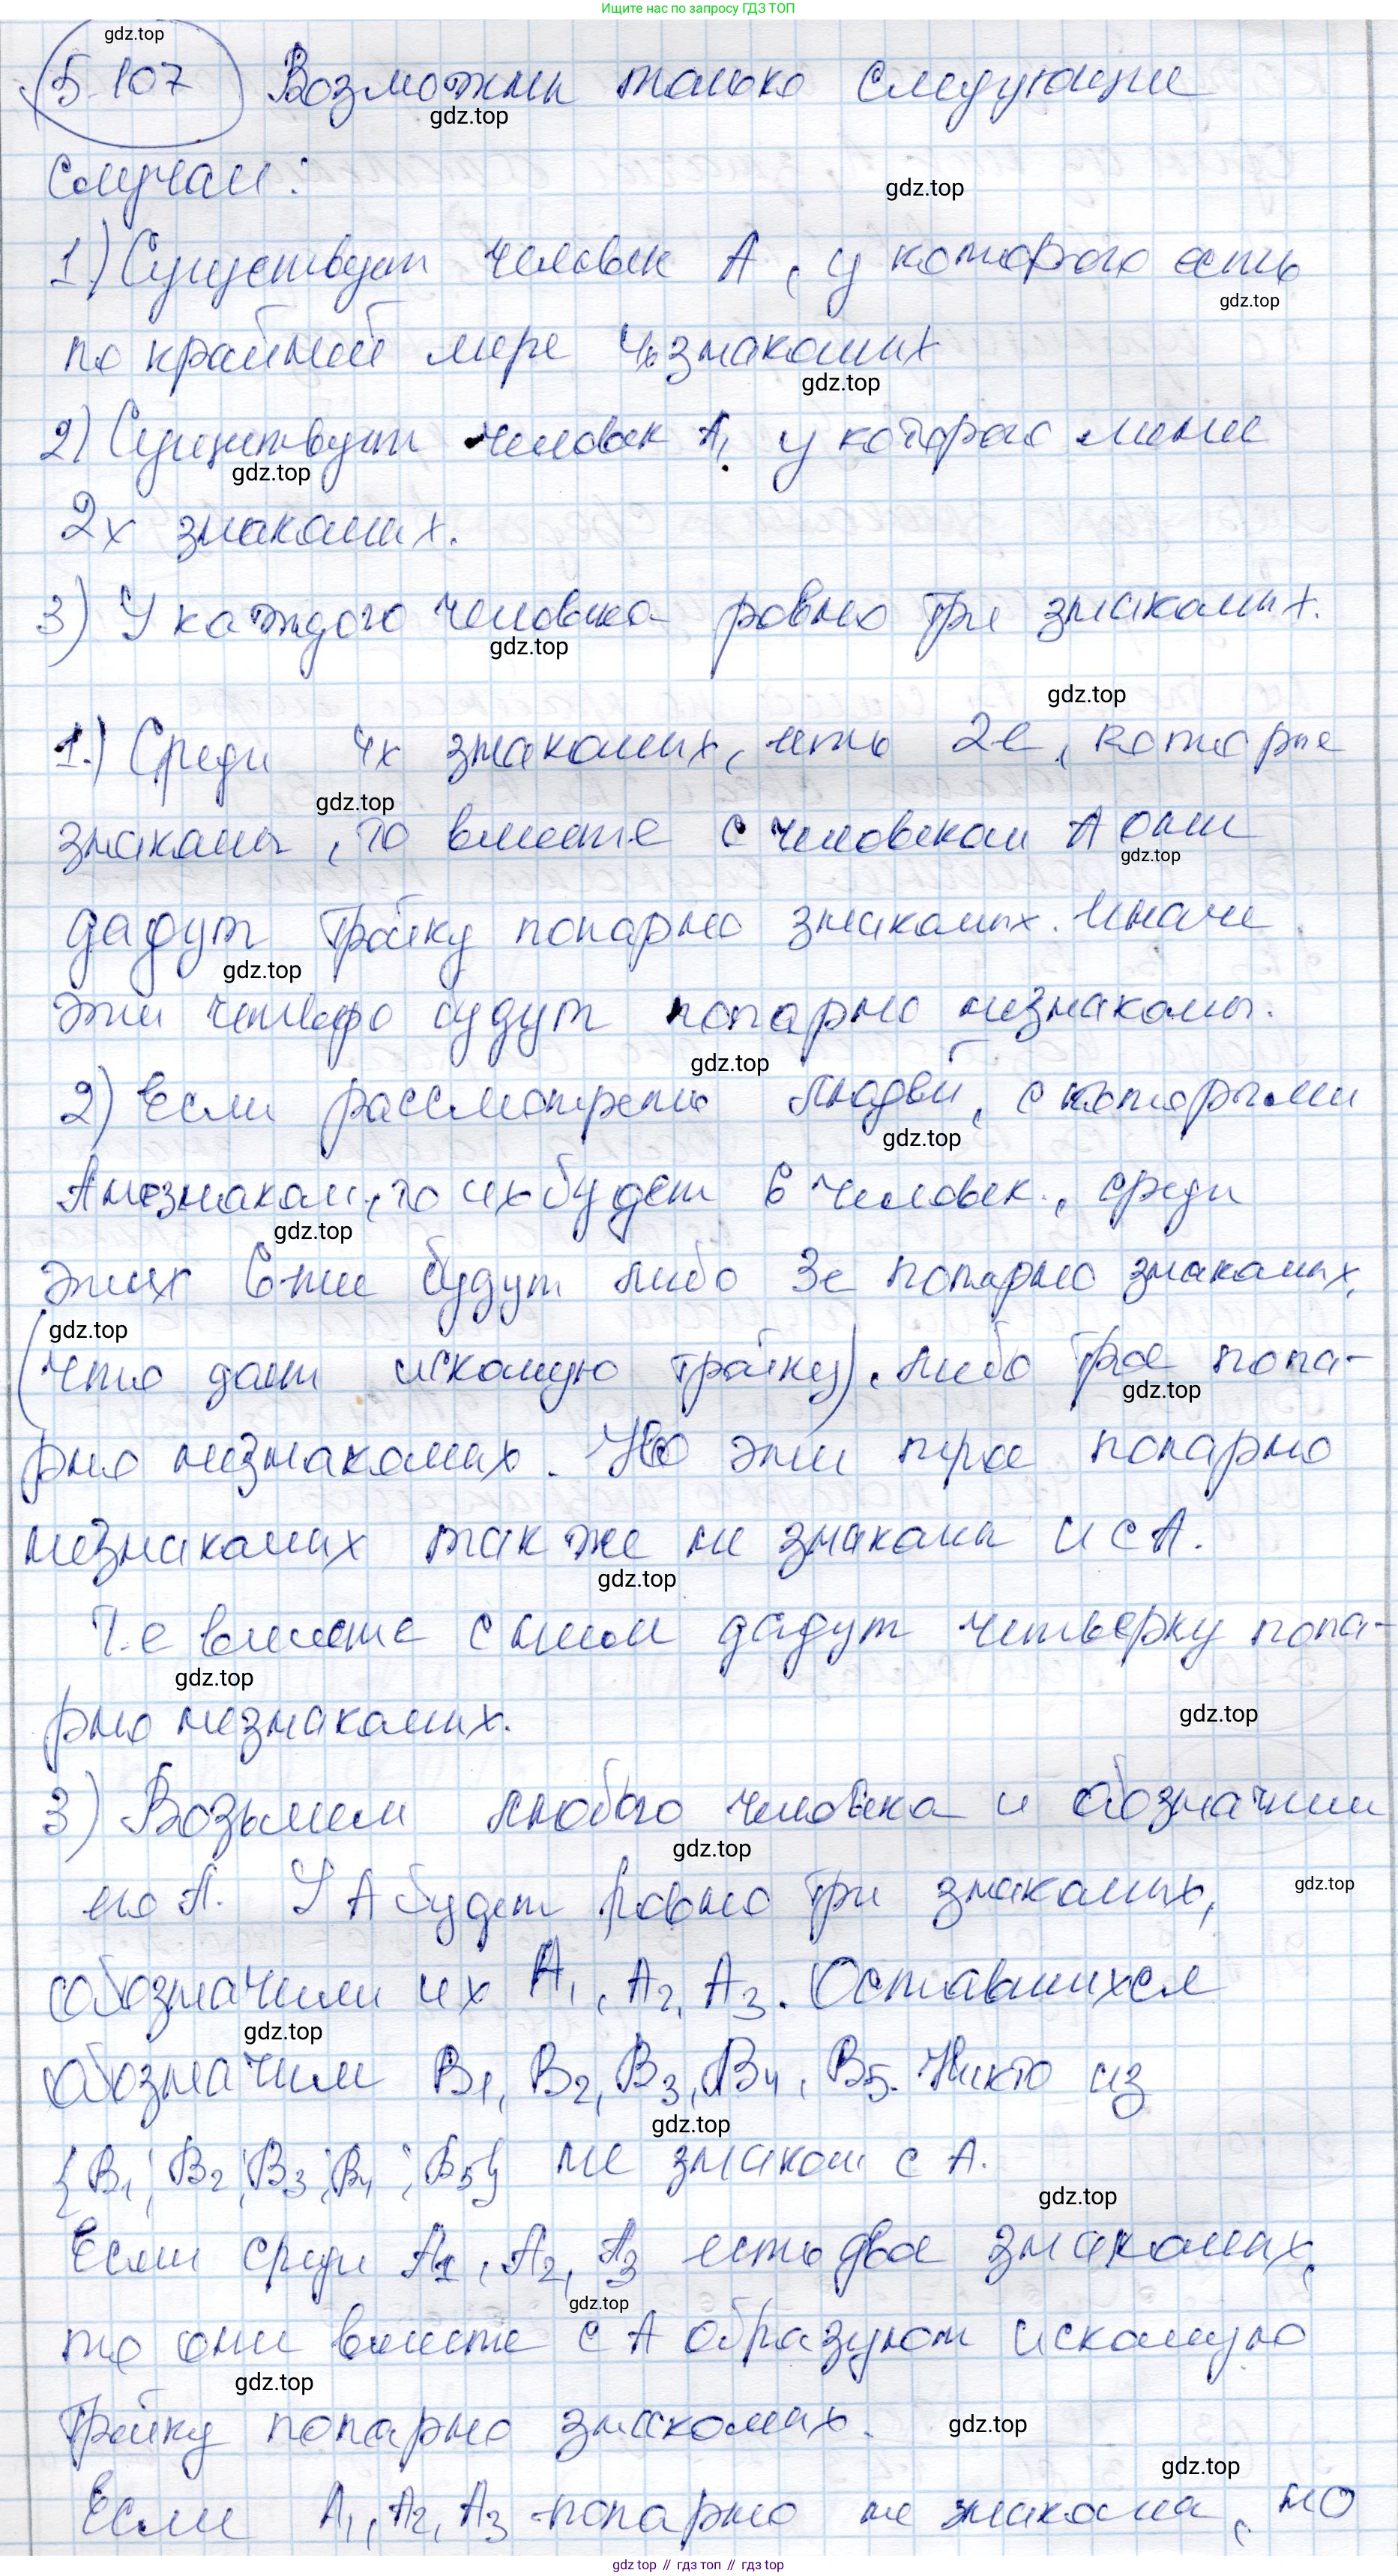 Ищите нас по запросу ГДЗ ТОП
gdz.top
5.107 Возможны только следующие
gdz.top
случаи:
gdz.top
1) Существует человек А, у которого есть
gdz.top
по крайней мере 4х знакомых
gdz.top
2) Существует человек А, у которого менее
gdz.top
2х знакомых.
3) У каждого человека ровно три знакомых.
gdz.top
gdz.top
1.) Среди 4х знакомых, есть 2е, которые
gdz.top
знакомы, то вместе с человеком А они
gdz.top
дадут тройку попарно знакомых. Иначе
gdz.top
эти четверо будут попарно незнакомы.
gdz.top
2) Если рассмотреть людей, с которыми
gdz.top
А незнаком, то их будет 6 человек, среди
gdz.top
этих 6-ти будут либо 3е попарно знакомых,
gdz.top
(что дает искомую тройку), либо трое попа-
gdz.top
рно незнакомых. Но эти трое попарно
незнакомых так же не знакомы и с А.
gdz.top
Т.е вместе с ним дадут четверку попа-
gdz.top
рно незнакомых.
gdz.top
3) Возьмем любого человека и обозначим
gdz.top
его А. У А будет ровно три знакомых,
gdz.top
обозначим их А₁, А₂, А₃. Оставшихся
gdz.top
обозначим В₁, В₂, В₃, В₄, В₅. Никто из
gdz.top
{В₁; В₂; В₃; В₄; В₅} не знаком с А.
gdz.top
Если среди А₁, А₂, А₃ есть двое знакомых,
gdz.top
то они вместе с А образуют искомую
gdz.top
тройку попарно знакомых.
gdz.top
gdz.top
Если А₁, А₂, А₃ - попарно не знакома, но
gdz.top // гдз топ // гдз.top